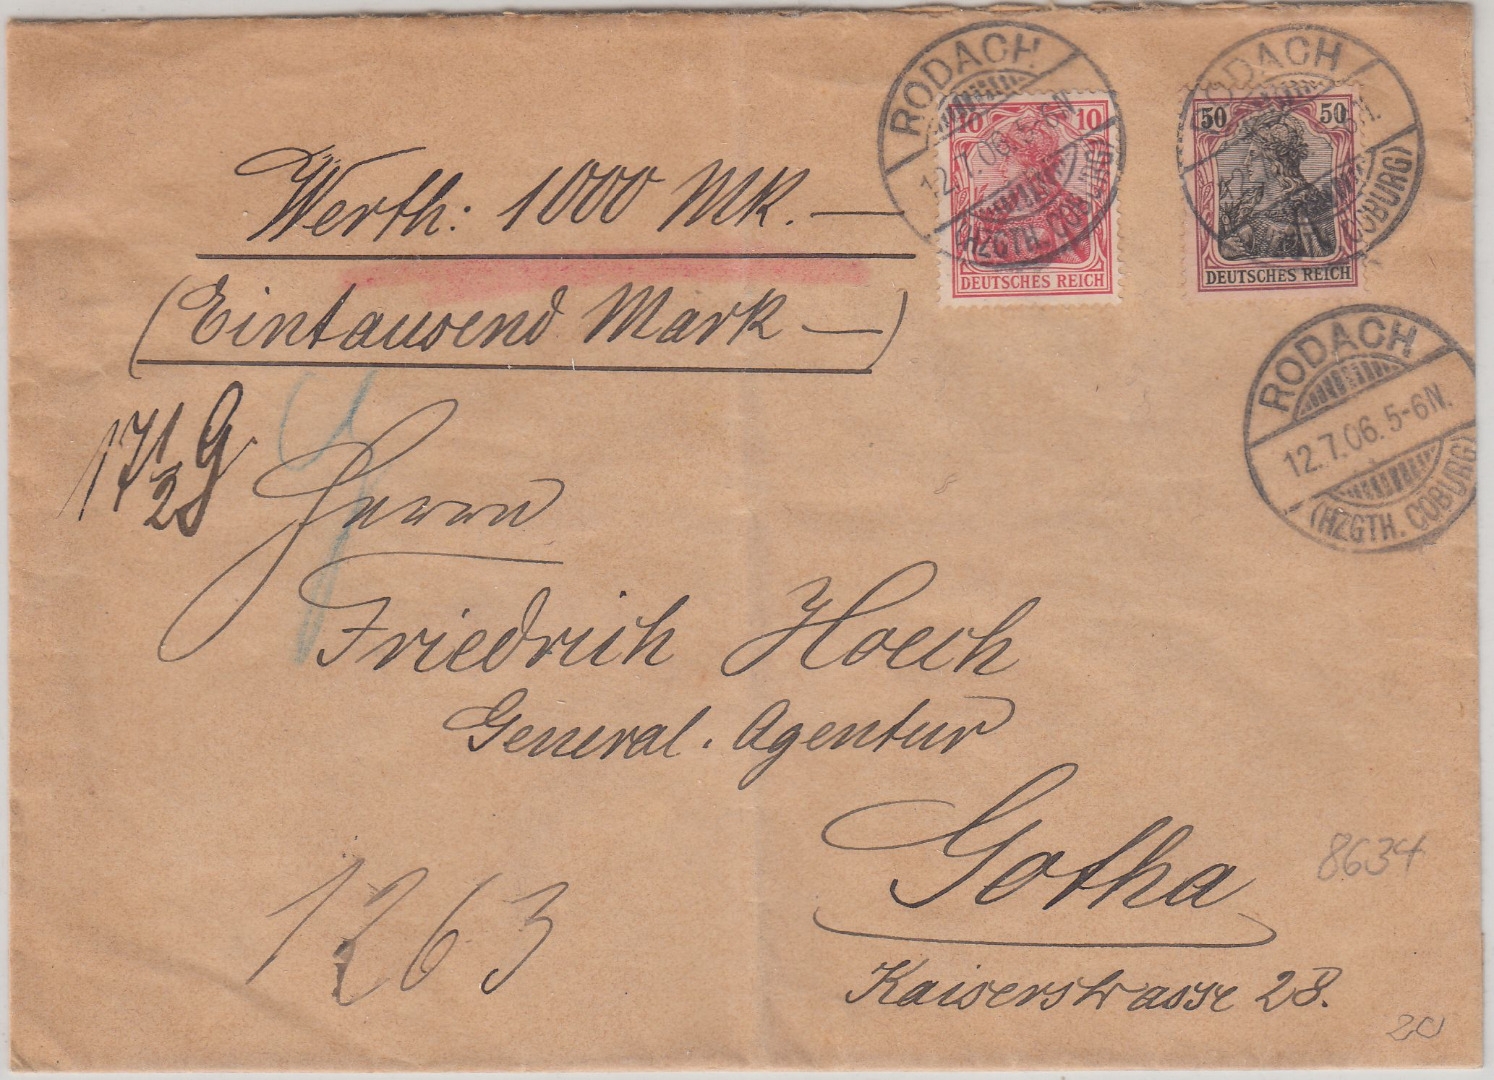 RODACH
12.7.06.5-6N.
(HZGTH. COBURG)
10 10
DEUTSCHES REICH
RODACH
(HZGTH. COBURG)
50 50
DEUTSCHES REICH
Werth: 1000 Mk. —
(Eintausend Mark —)
RODACH
12.7.06.5-6N.
(HZGTH. COBURG)
17 1/2 G
Herrn
Friedrich Hoech
General-Agentur
Gotha
8634
1263
Kaiserstrasse 28.
20